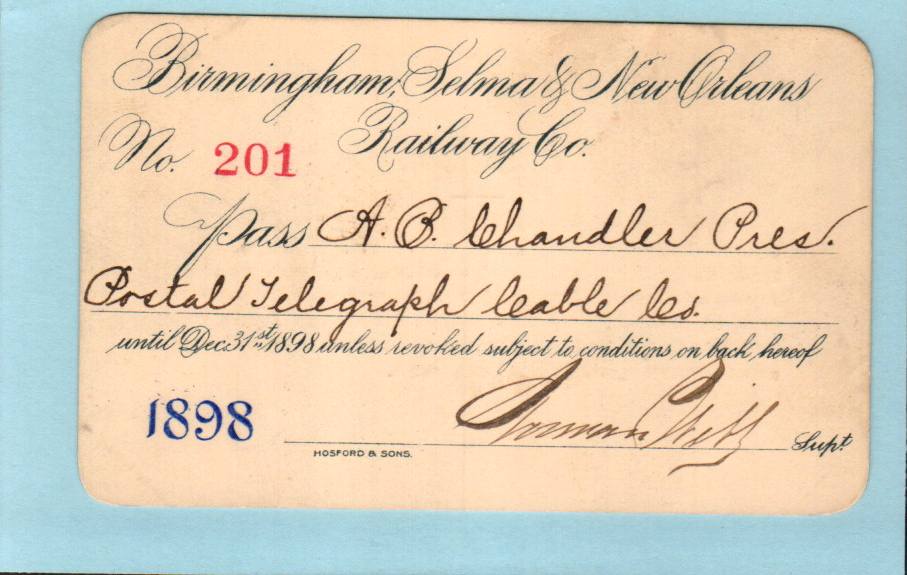 Birmingham, Selma & New Orleans
Railway Co.
No. 201
Pass A. B. Chandler Pres.
Postal Telegraph Cable Co.
until Dec. 31st, 1898 unless revoked subject to conditions on back hereof
1898
Norman Supt
HOSFORD & SONS.